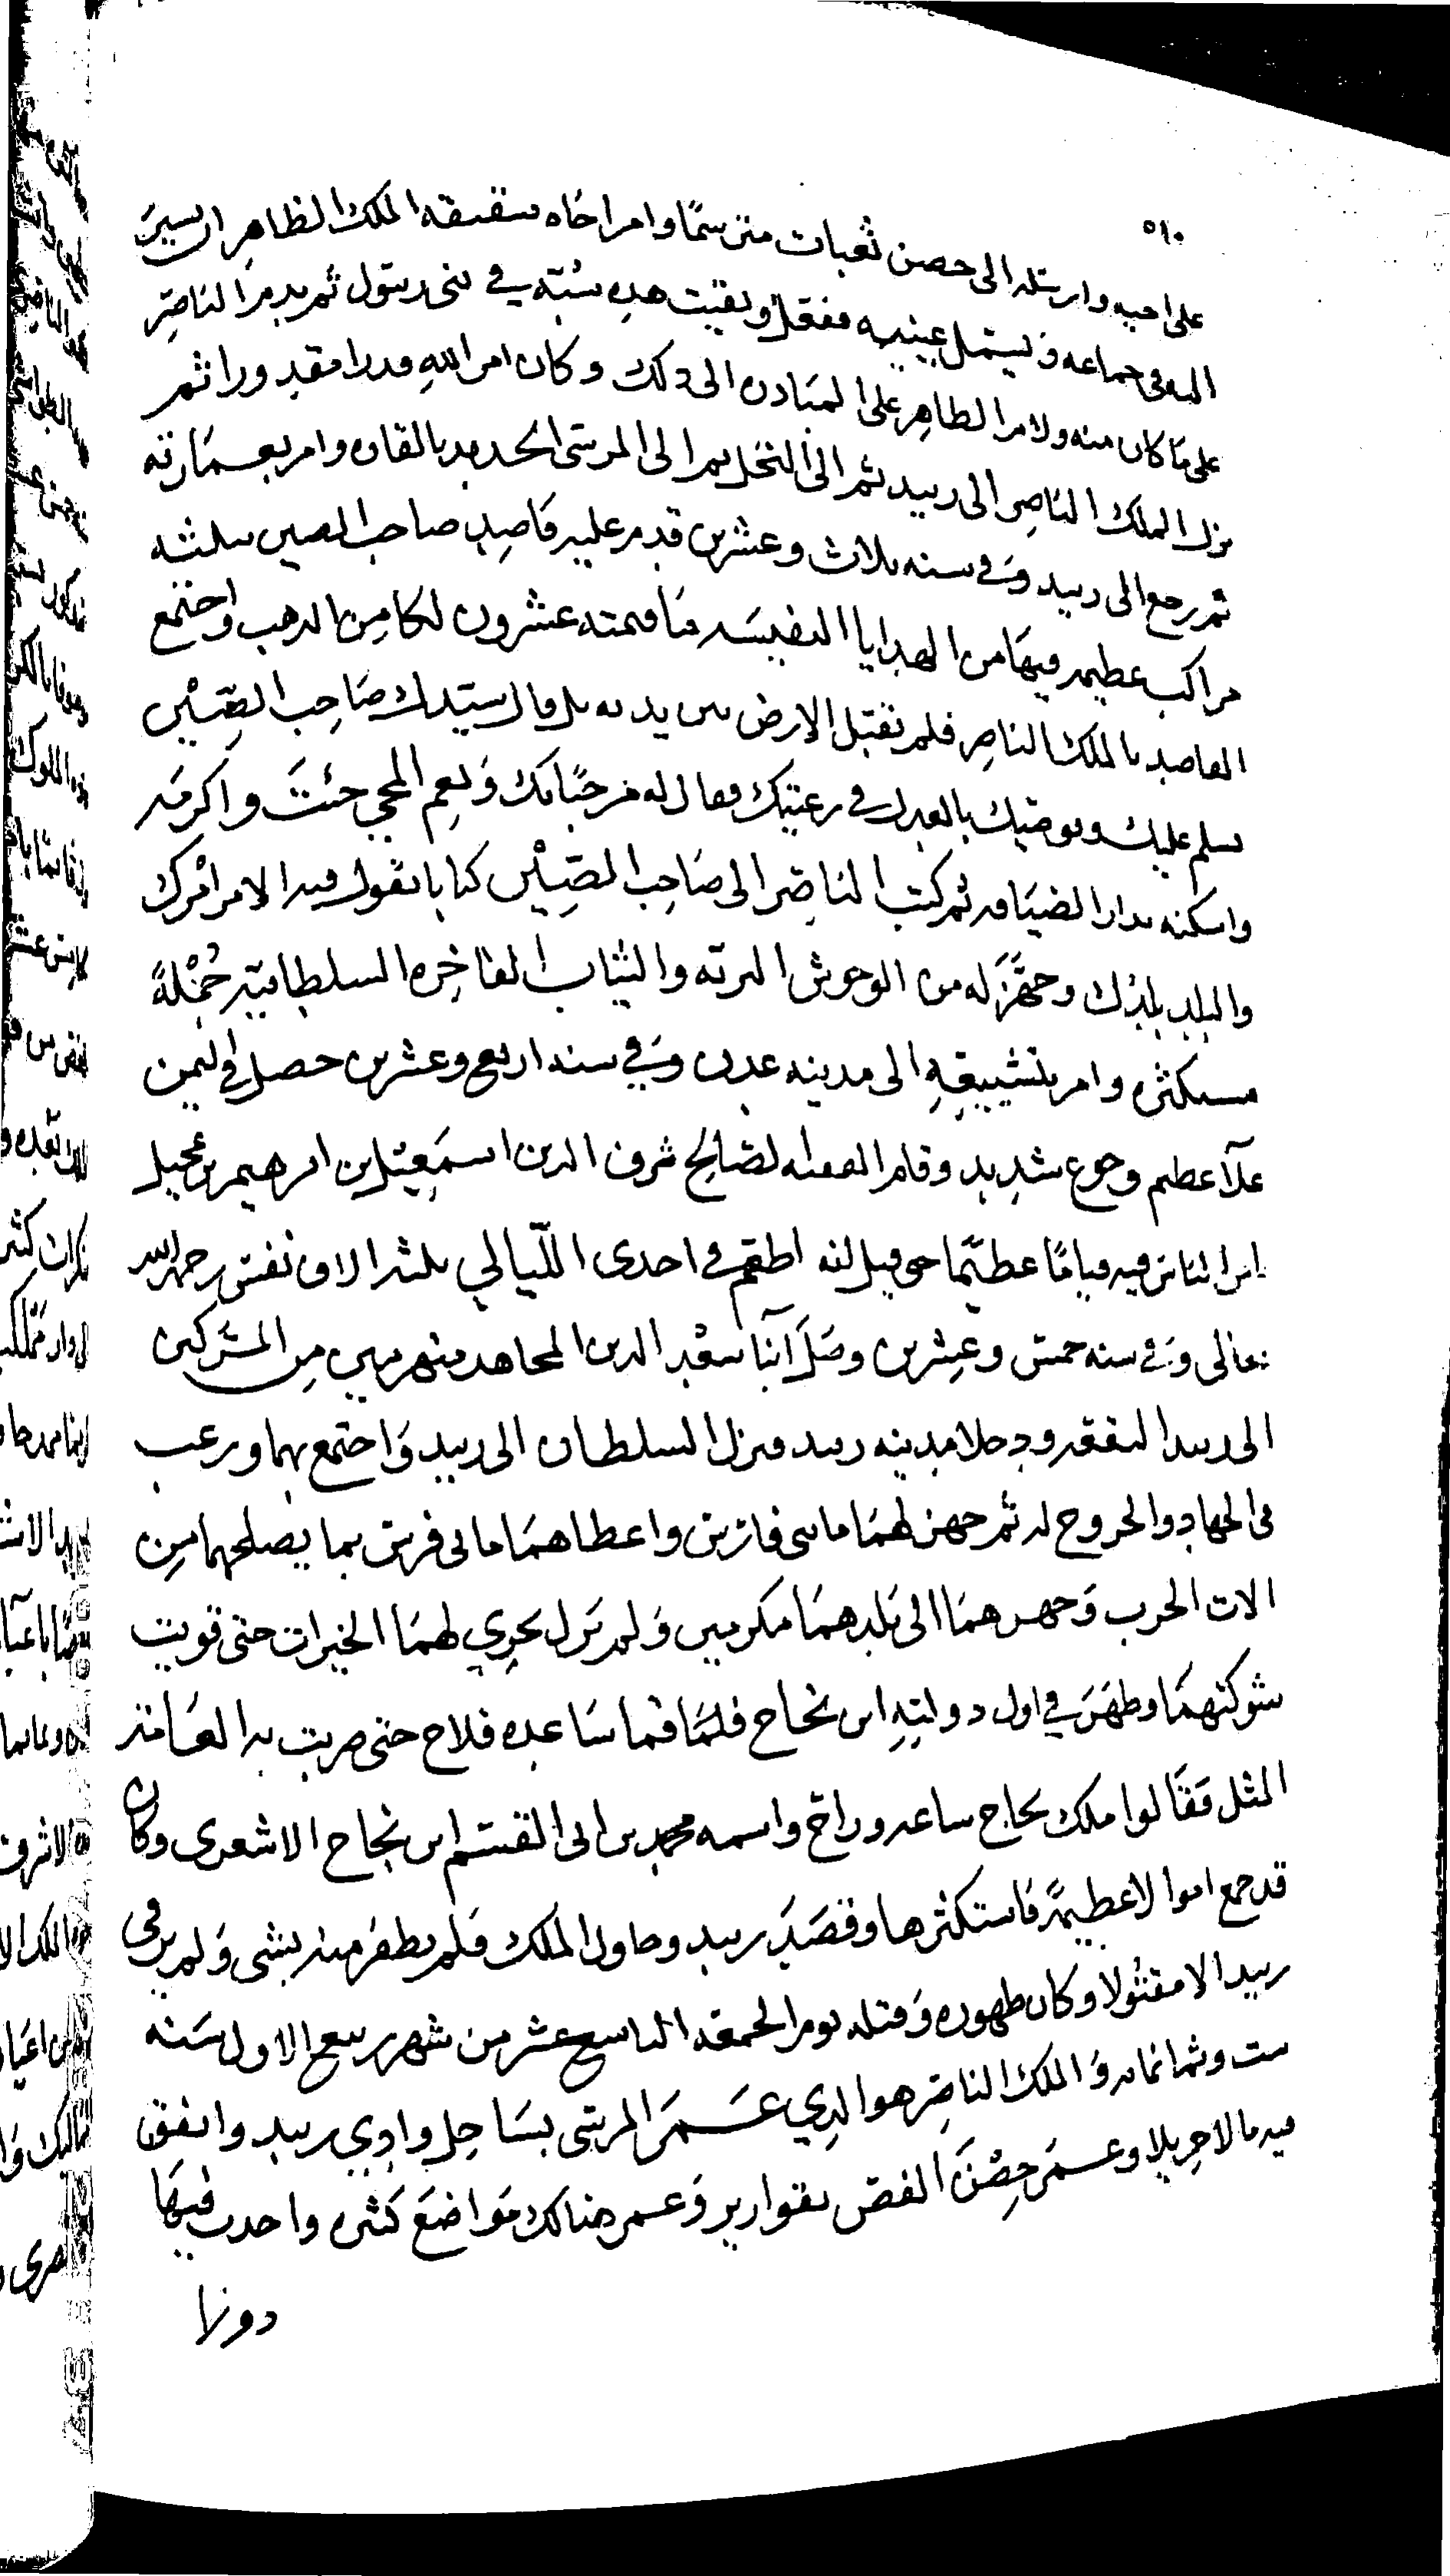 ٥١٠
على اخيه وارسله الى حصن ثعبات مترسمًا وامر اخاه شقيقه الملك الظاهر ان يسير
اليه في جماعه ويسمل عينيه ففعل وبقيت هذه سُبّه في بنى رسول ثم يدم الناصر
على ما كان منه ولام الظاهر على المبادره الى ذلك وكان امر الله قدرا مقدورا ثم
نزل الملك الناصر الى زبيد ثم الى النخل ثم الى المرسى الجديد بالقاره وامر بعمارته
ثم رجع الى زبيد وفى سنه ثلاث وعشرين قدم عليه قاصد صاحب الصين بثلثه
مراكب عظيمه فيها من الهدايا النفيسه ما قيمته عشرون لكا من الذهب واجتمع
القاصد بالملك الناصر فلم يقبل الارض بين يديه بل قال سيدك صاحب الصين
يسلم عليك ويوصيك بالعدل في رعيتك فقال له مرحبًا بك ونعم المجي جئت واكرمه
واسكنه بدار الضيافه ثم كتب الناصر الى صاحب الصين كتابا يقول فيه الامر امرك
والبلد بلدك وجهّز له من الوحوش البريه والثياب الفاخره السلطانيه جُمْلةً
مستكثره وامر بتشييعه الى مدينه عدن وفي سنه اربع وعشرين حصل في اليمن
غلآ عظيم وجوع شديد وقام الفقيه الصالح شرف الدين اسمعيل بن ابرهيم بن عجيل
بامر الناس فيه قياما عظيمًا حتى قيل انه اطعم في احدى الليالي ثلثه الاف نفس رحمه الله
تعالى وفى سنه خمس وعشرين وصل آبنا سعد الدين المجاهد منهزمين من المشركين
الى زبيد النفقه ودخلا مدينه زبيد فنزل السلطان الى زبيد واجتمع بهما ورغب
في الجهاد والخروج له ثم جهز لهما مايتى فارس واعطاهما مايى فرس بما يصلحهما من
الات الحرب وجهزهما الى بلدهما مكرمين ولم يزل يجرى لهما الخيرات حتى قويت
شوكتهما وظهر في اول دولته ابن نجاح فلما قما ساعده فلاح حتى ضربت به العامه
المثل فقالوا ملك نجاح ساعه وراح واسمه محمد بن ابى القسم ابن نجاح الاشعرى وكان
قد جمع اموالا عظيمه فاستكثرها وقصد زبيد وحاول الملك فلم يظفر منه بشى ولم ير فى
زبيد الا مقتولا وكان ظهوره وقتله يوم الجمعه التاسع عشر من شهر ربيع الاول سنه
ست وثمانمايه والملك الناصر هو الذي عمر المرسى بساحل وادي زبيد وانفق
فيه مالا جزيلا وعمر حصن الفص بقوارير وعمر هنالك مواضع كثيره واحدث فيها
دورًا